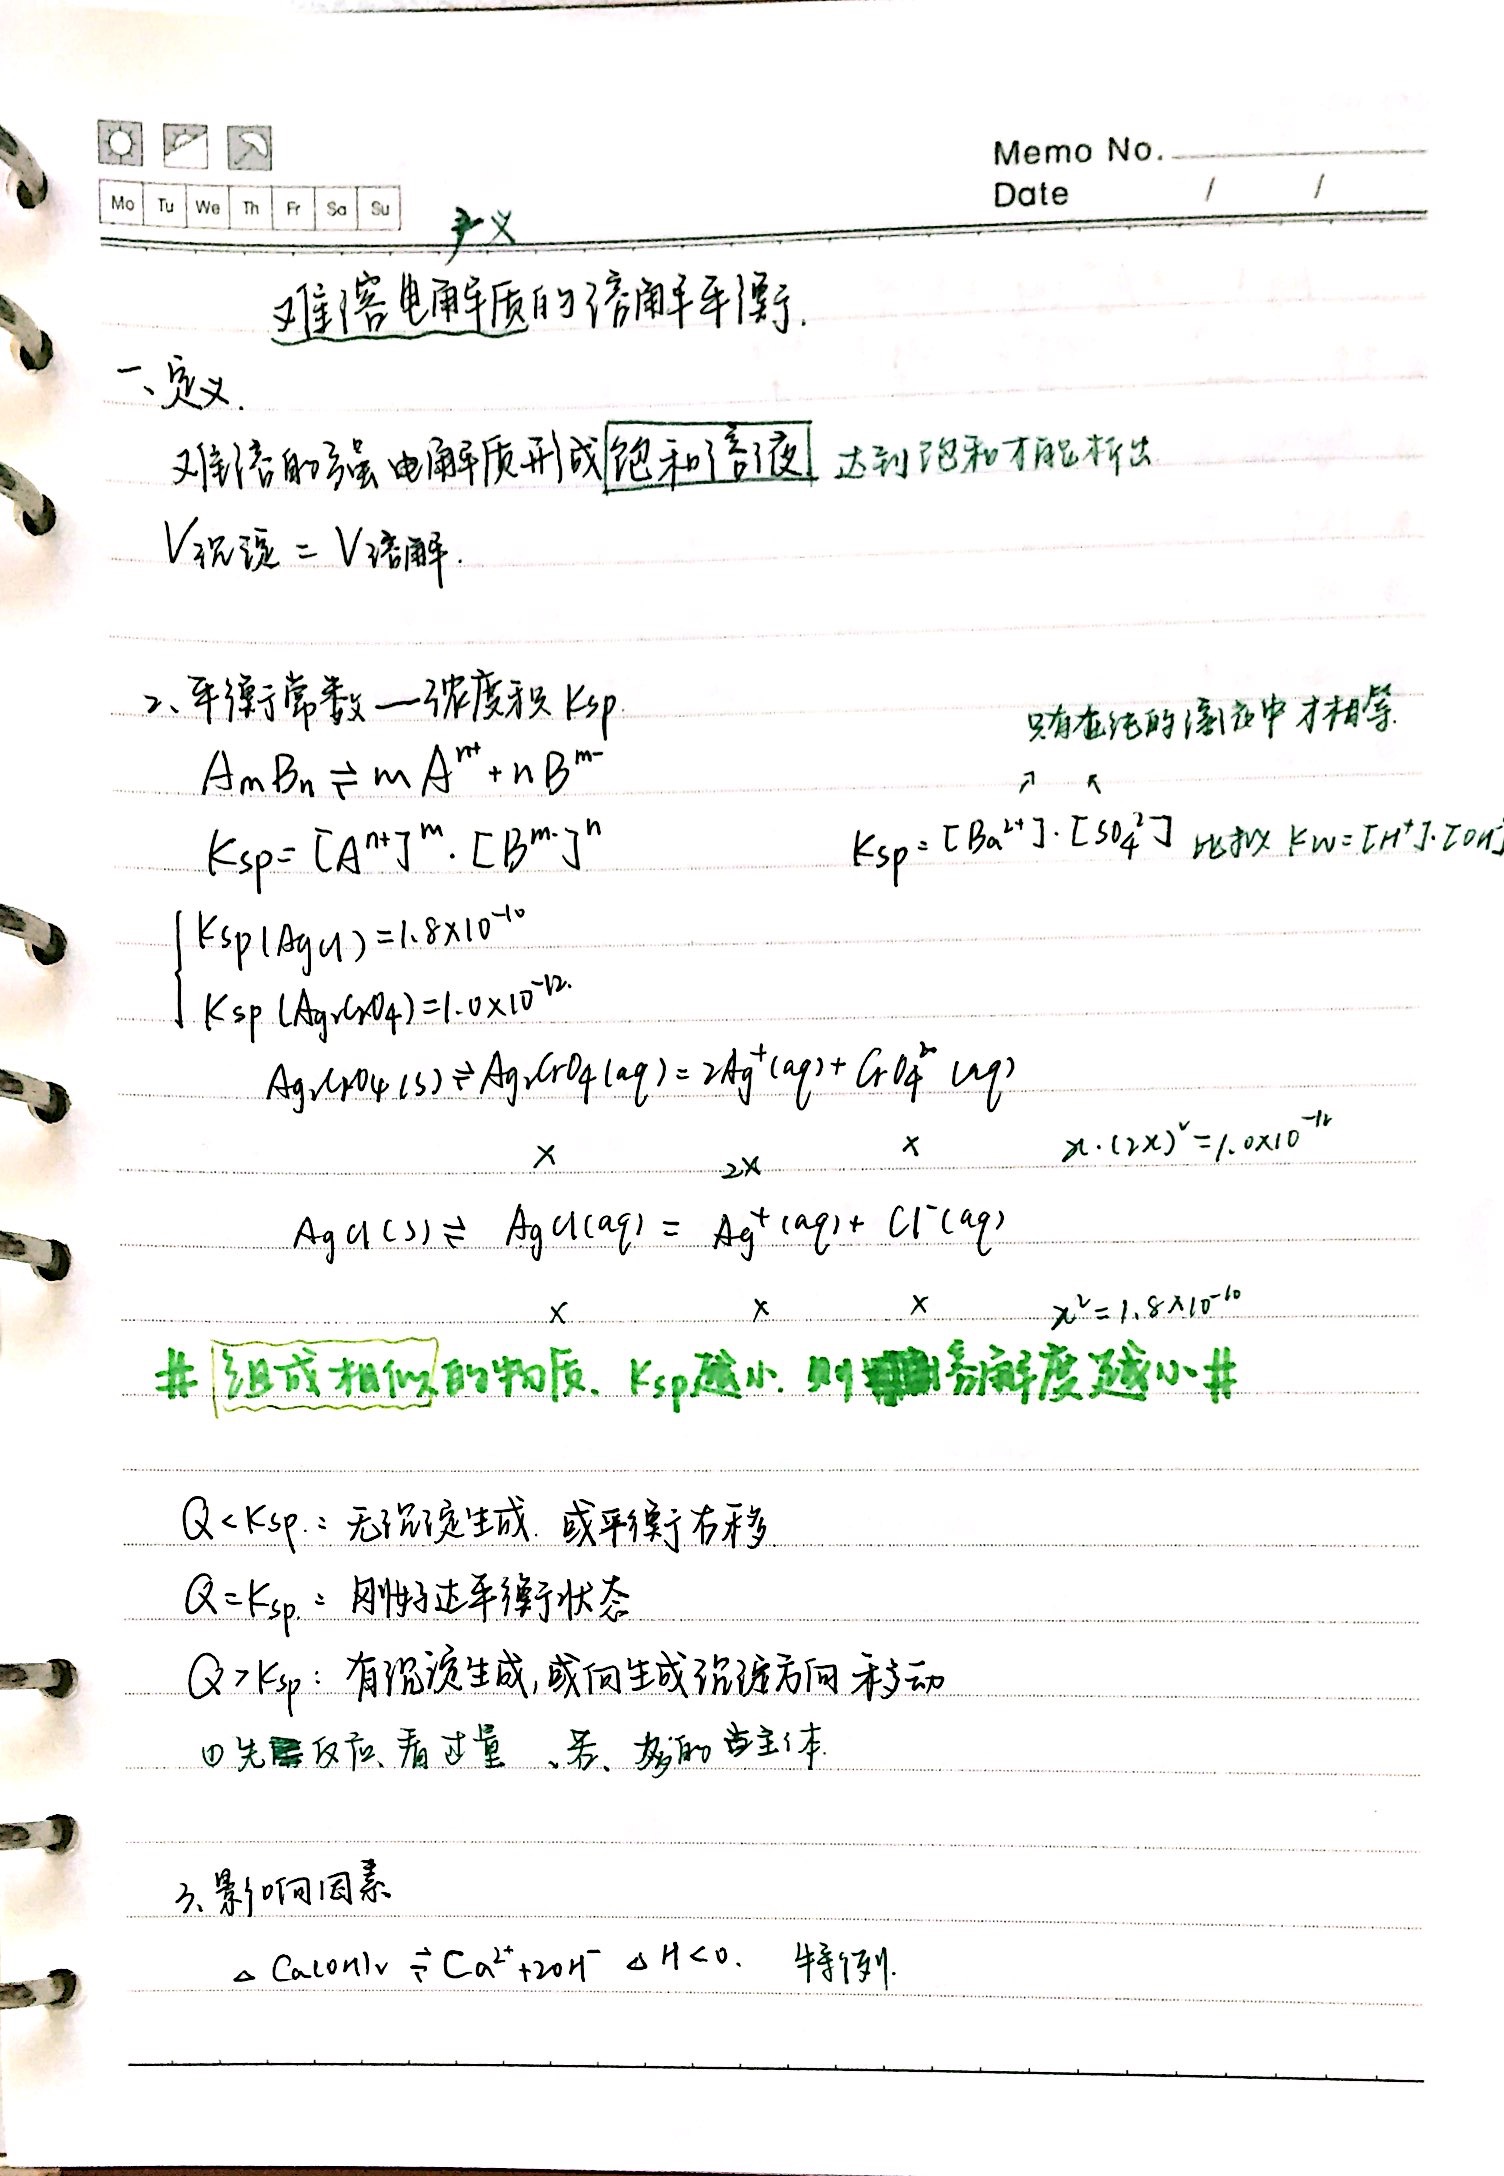 Memo No.
Date / /
Mo Tu We Th Fr Sa Su
难溶电解质的溶解平衡.
一、定义.
难溶的强电解质形成饱和溶液 达到饱和才能析出
V沉淀 = V溶解.
2、平衡常数 — 浓度积 Ksp.
只有在纯的溶液中才相等.
AmBn ⇌ mAⁿ⁺ + nBᵐ⁻
↗ ↖
Ksp = [Aⁿ⁺]ᵐ · [Bᵐ⁻]ⁿ
Ksp = [Ba²⁺] · [SO₄²⁻] 比拟 Kw = [H⁺] · [OH⁻]
Ksp (AgCl) = 1.8×10⁻¹⁰
Ksp (Ag₂CrO₄) = 1.0×10⁻¹².
Ag₂CrO₄ (s) ⇌ Ag₂CrO₄ (aq) = 2Ag⁺ (aq) + CrO₄²⁻ (aq)
x 2x x x·(2x)² = 1.0×10⁻¹²
AgCl (s) ⇌ AgCl (aq) = Ag⁺ (aq) + Cl⁻ (aq)
x x x x² = 1.8×10⁻¹⁰
# 组成相似的物质、Ksp越小、则溶解度越小 #
Q < Ksp.: 无沉淀生成. 或平衡右移.
Q = Ksp.: 刚好达平衡状态
Q > Ksp: 有沉淀生成, 或向生成沉淀方向移动
① 先反应、看过量、多的当主体.
3、影响因素
△ Ca(OH)₂ ⇌ Ca²⁺ + 2OH⁻ △H < 0. 特例.